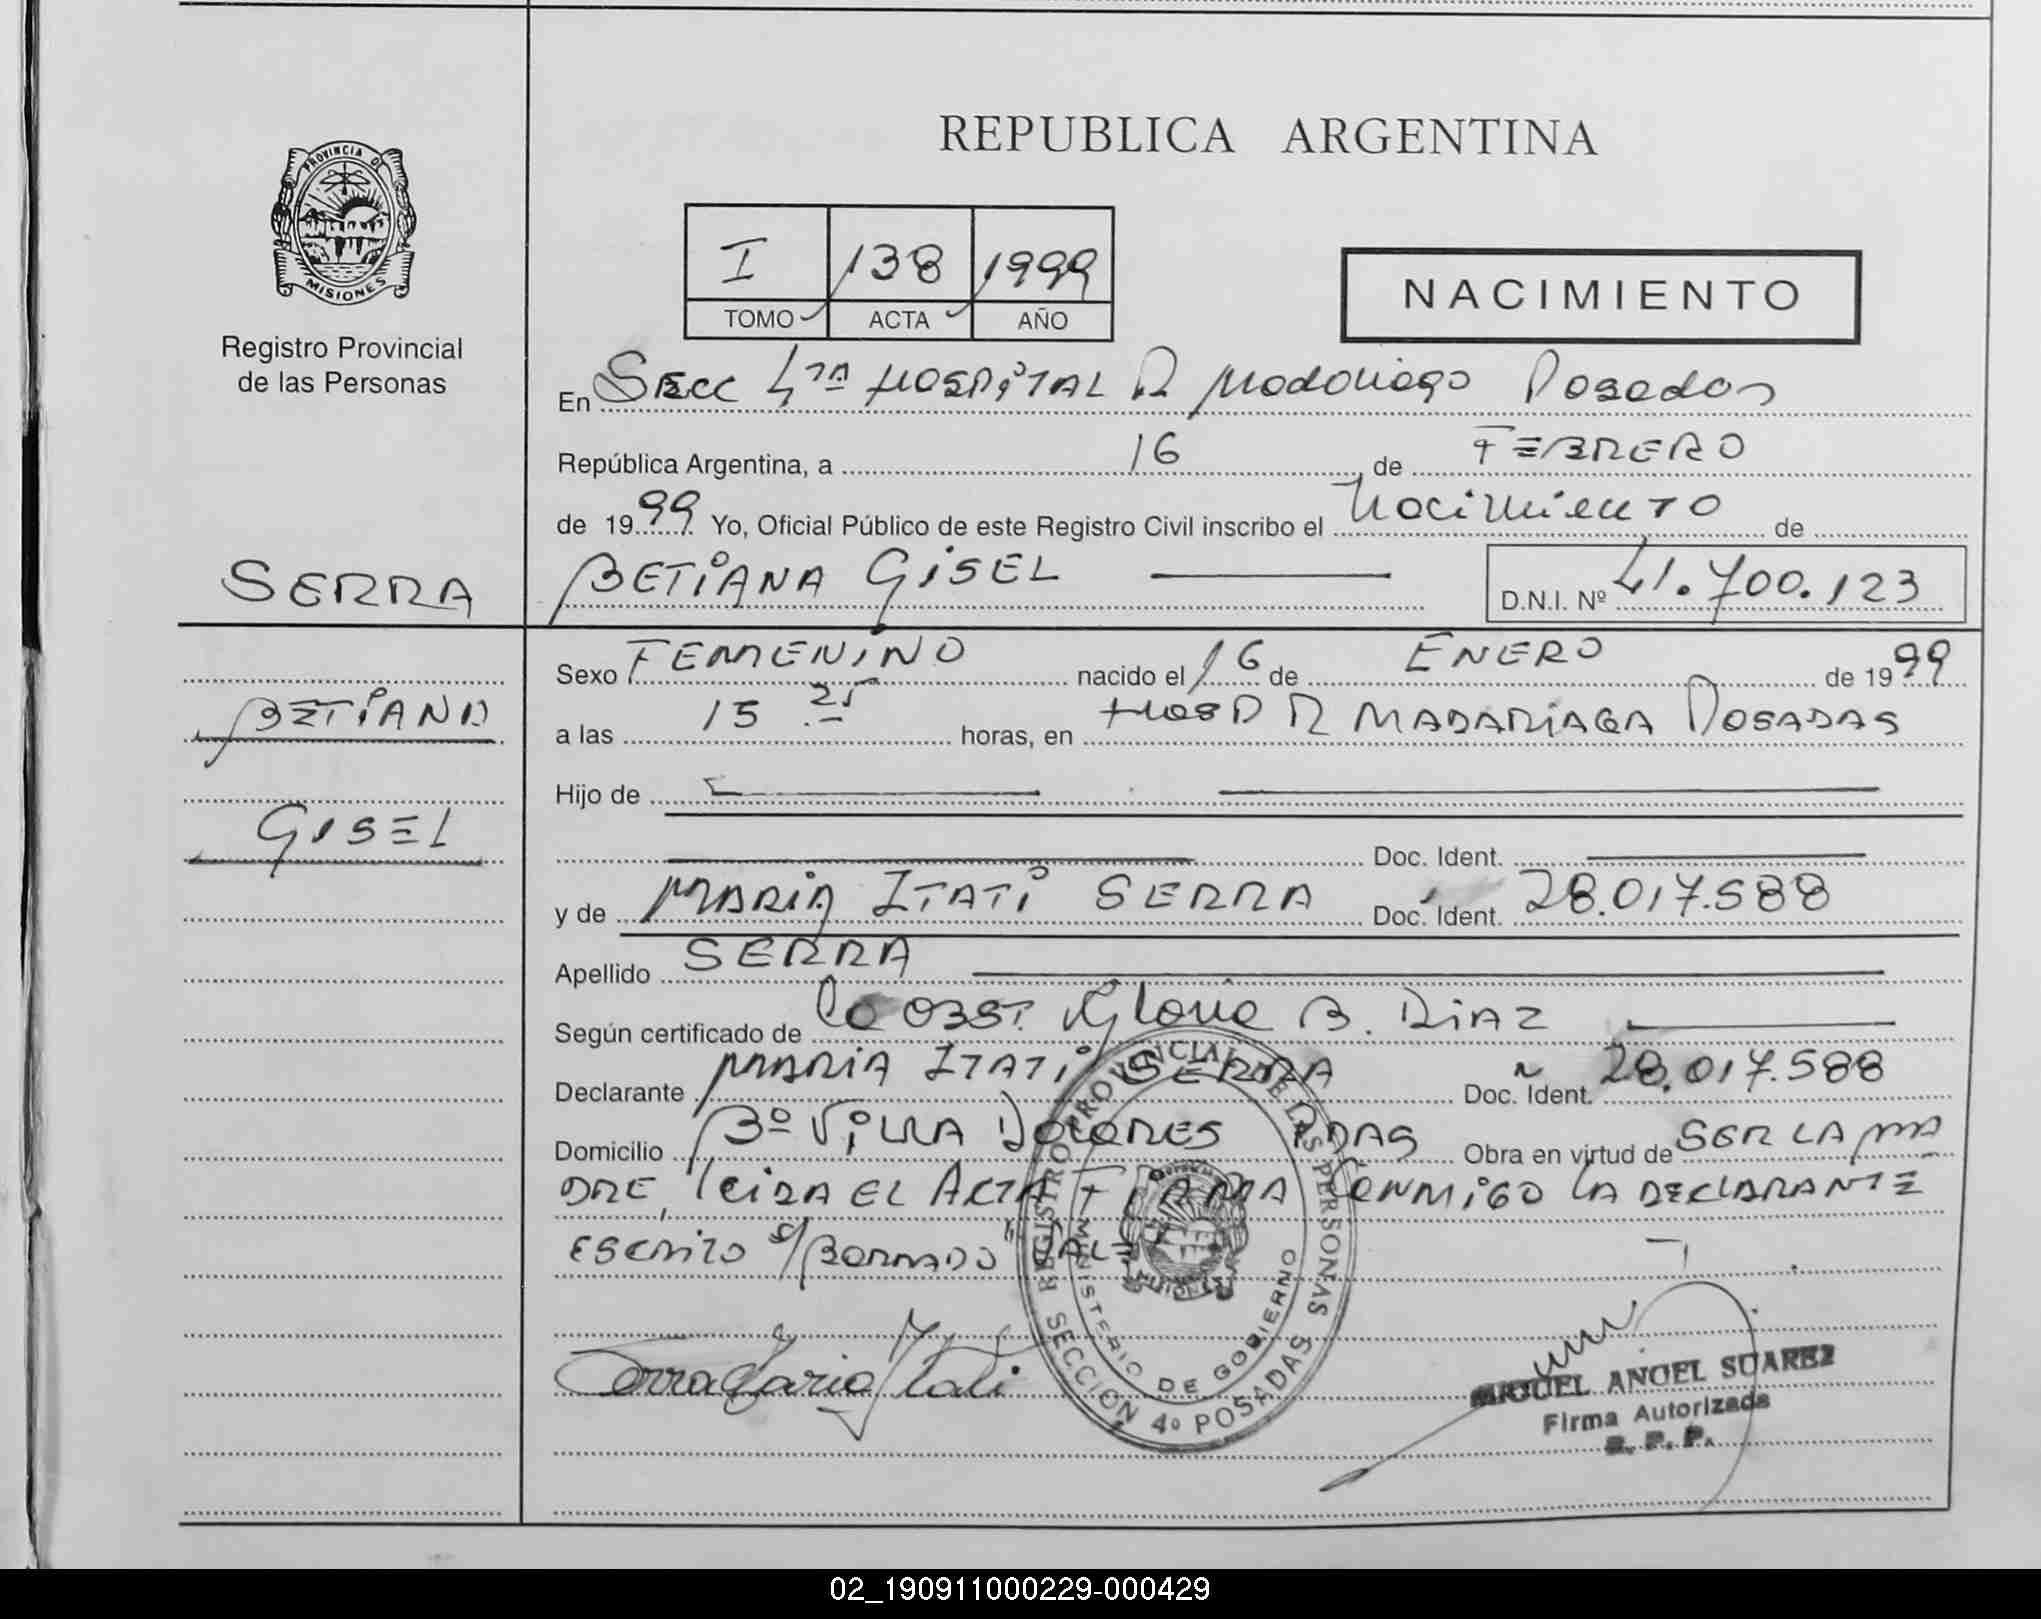 REPUBLICA ARGENTINA
PROVINCIA D
MISIONES
Registro Provincial
de las Personas
I 138 1999
TOMO ACTA AÑO
NACIMIENTO
En SECC 4TA HOSPITAL R Madariaga Posadas
República Argentina, a 16 de FEBRERO
de 1999 Yo, Oficial Público de este Registro Civil inscribo el Nacimiento de
SERRA
BETIANA GISEL
D.N.I. Nº 41.700.123
Sexo FEMENINO nacido el 16 de ENERO de 1999
BETIANA
a las 15 25 horas, en HOSP R MADARIAGA POSADAS
Hijo de
GISEL
Doc. Ident.
y de MARIA ITATI SERRA Doc. Ident. 28.017.588
Apellido SERRA
Según certificado de OBST. Gloria B. DIAZ
Declarante MARIA ITATI SERRA Doc. Ident. 28.017.588
Domicilio Bº VILLA DOLORES PDAS Obra en virtud de SER LA MA
DRE, leida EL ACTA FIRMA CONMIGO LA DECLARANTE
ESCRITO S/ BORRADO "VALE"
REGISTRO PROVINCIAL DE LAS PERSONAS
MINISTERIO DE GOBIERNO
MISIONES
SECCION 4º POSADAS
Serra Maria Itati
MIGUEL ANGEL SUAREZ
Firma Autorizada
R. P. P.
02_190911000229-000429